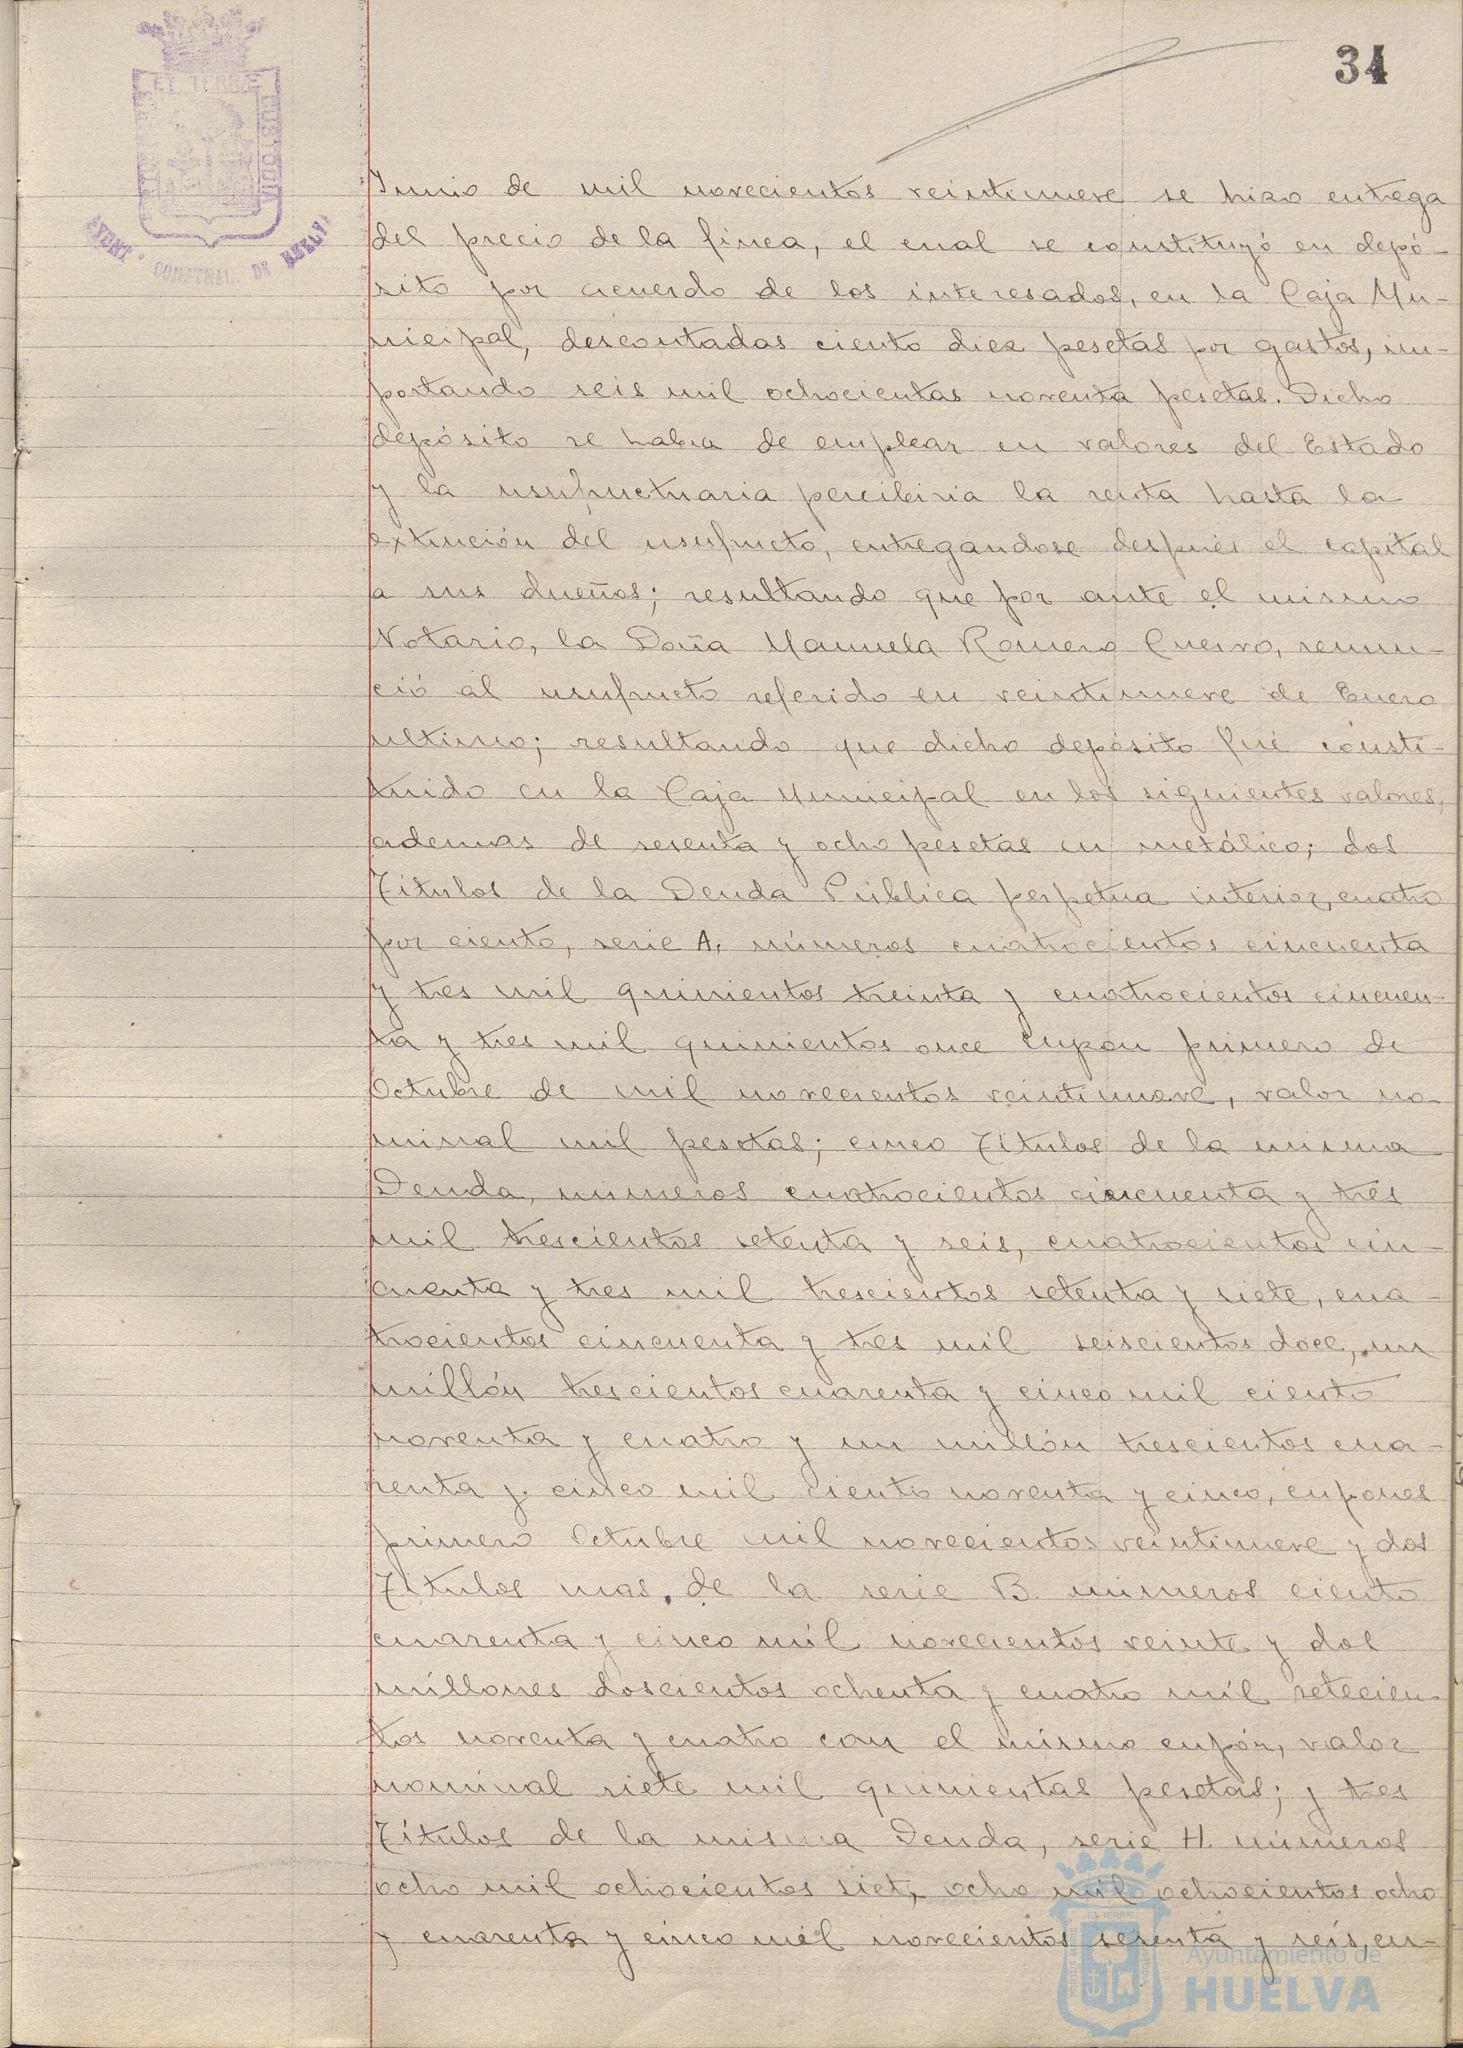 34
ET TERRÆ
CUSTODIA
AYUNT. CONSTNAL. DE HUELVA
Junio de mil novecientos veintinueve se hizo entrega
del precio de la finca, el cual se constituyó en depó-
sito por acuerdo de los interesados, en la Caja Mu-
nicipal, descontadas ciento diez pesetas por gastos, im-
portando seis mil ochocientas noventa pesetas. Dicho
depósito se habia de emplear en valores del Estado
y la usufructuaria percibiria la renta hasta la
extinción del usufructo, entregandose despues el capital
a sus dueños; resultando que por ante el mismo
Notario, la Doña Manuela Romero Cuervo, renun-
ció al usufructo referido en veintinueve de Enero
ultimo; resultando que dicho depósito fué consti-
tuido en la Caja Municipal en los siguientes valores,
ademas de sesenta y ocho pesetas en metálico; dos
Títulos de la Deuda Pública perpetua interior, cuatro
por ciento, serie A, números cuatrocientos cincuenta
y tres mil quinientos treinta y cuatrocientos cincuen-
ta y tres mil quinientos once cupon primero de
Octubre de mil novecientos veintinueve, valor no-
minal mil pesetas; cinco Títulos de la misma
Deuda, números cuatrocientos cincuenta y tres
mil trescientos setenta y seis, cuatrocientos cin-
cuenta y tres mil trescientos setenta y siete, cua-
trocientos cincuenta y tres mil seiscientos doce, un
millón trescientos cuarenta y cinco mil ciento
noventa y cuatro y un millón trescientos cua-
renta y cinco mil ciento noventa y cinco, cupones
primero Octubre mil novecientos veintinueve y dos
Títulos mas, de la serie B. números ciento
cuarenta y cinco mil novecientos veinte y dos
millones doscientos ochenta y cuatro mil setecien-
tos noventa y cuatro con el mismo cupón, valor
nominal siete mil quinientas pesetas; y tres
Títulos de la misma Deuda, serie H. números
ocho mil ochocientos siete, ocho mil ochocientos ocho
y cuarenta y cinco mil novecientos sesenta y seis, cu-
Ayuntamiento de
HUELVA